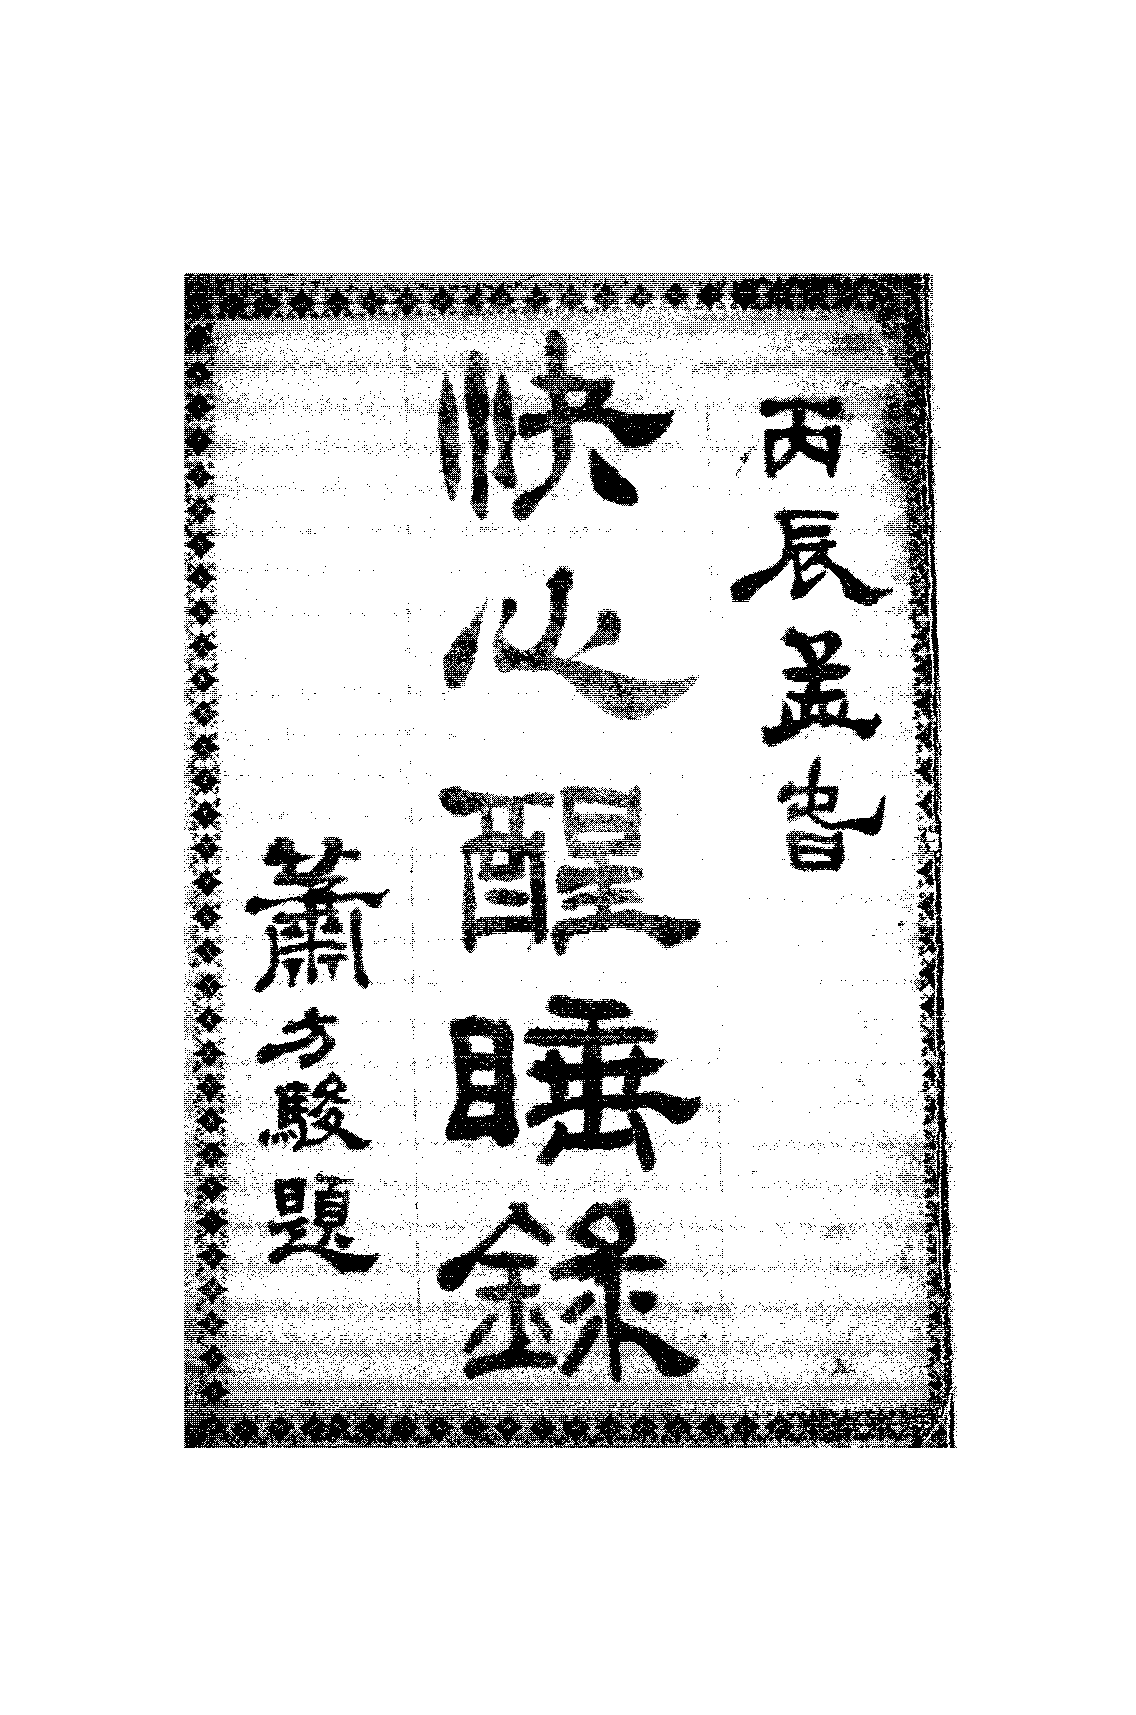 丙辰孟春
快心醒睡錄
蕭方駿題